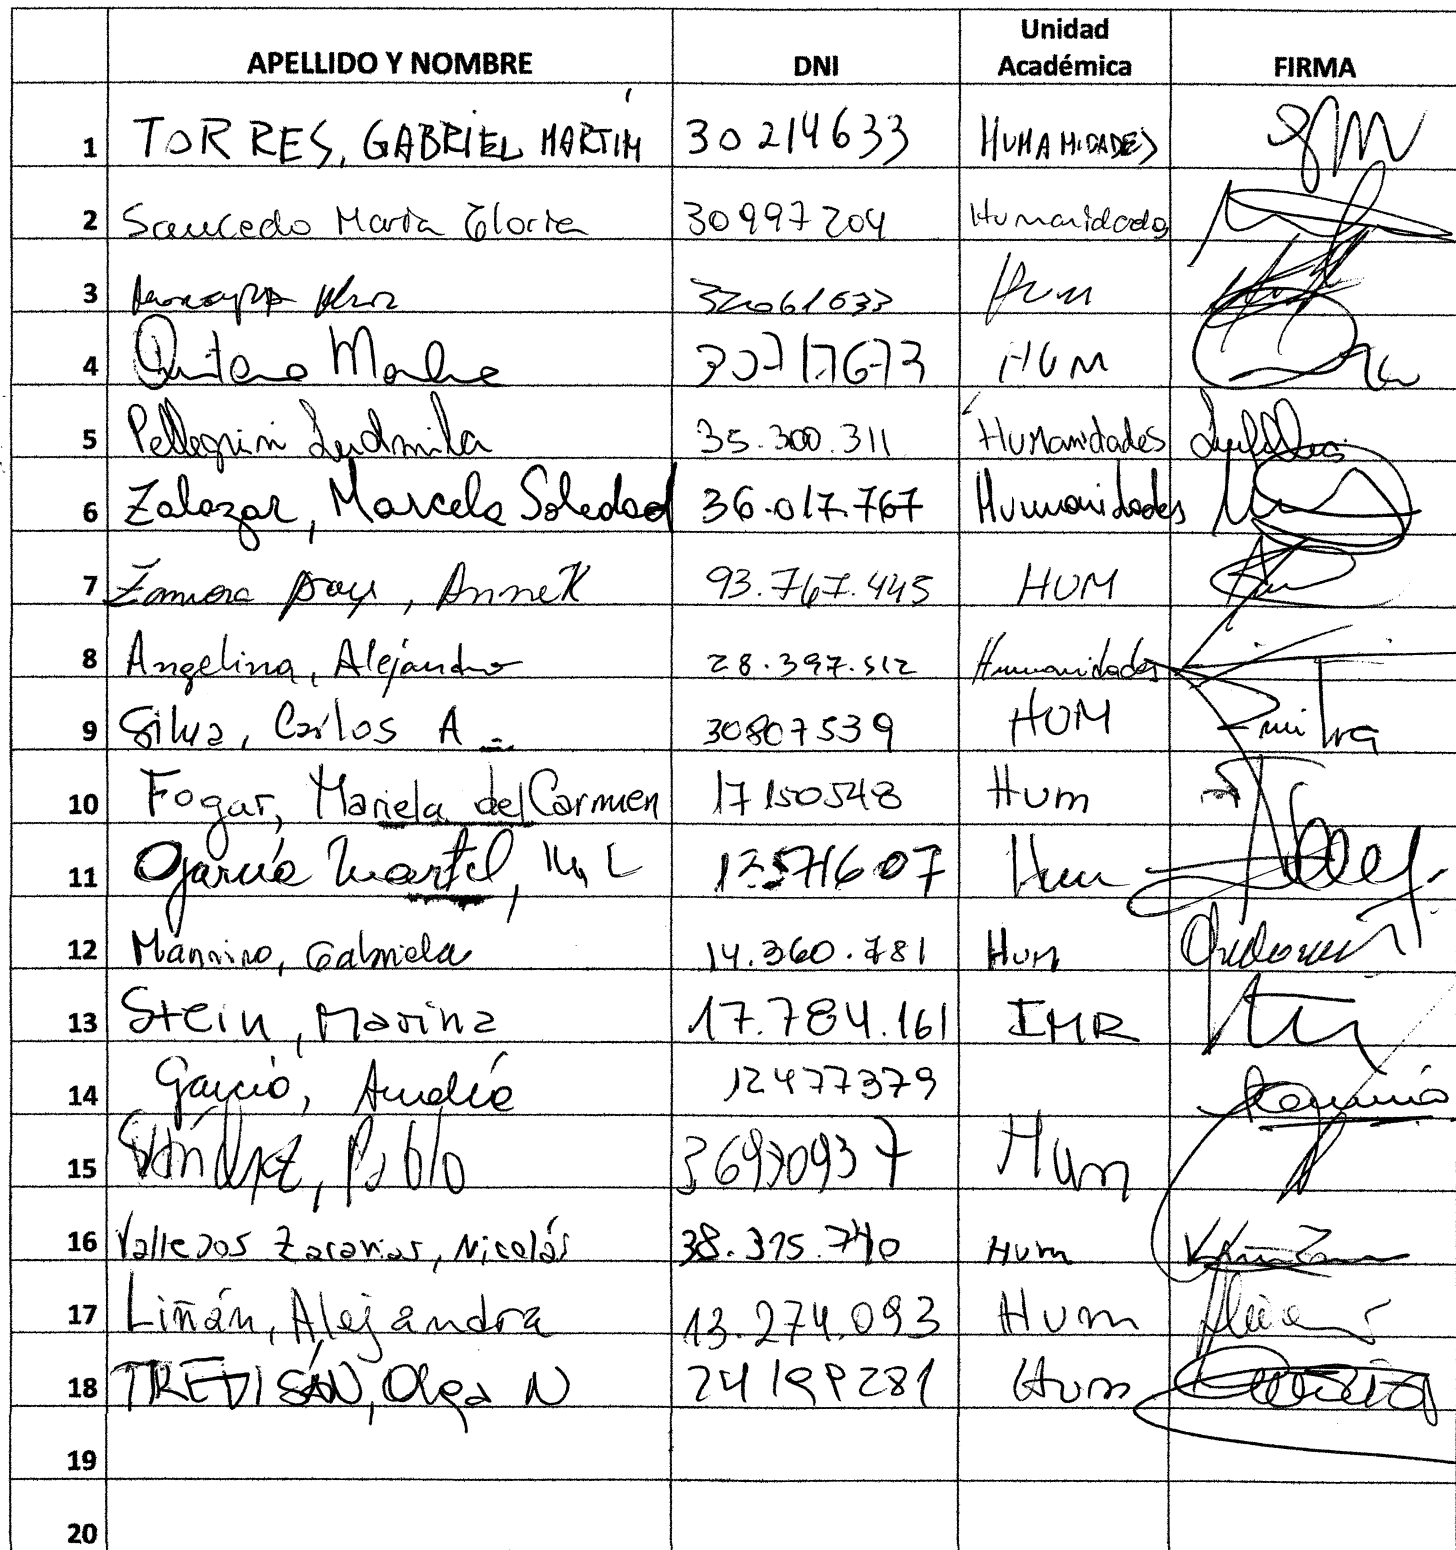 Unidad
APELLIDO Y NOMBRE DNI Académica FIRMA
1 TORRES, GABRIEL MARTÍN 30214633 HUMANIDADES
2 Saucedo María Gloria 30997204 Humanidades
3 32061633 Hum
4 Quintana HUM
5 Pellegrini Ludmila 35.300.311 Humanidades
6 Zalazar, Marcela Soledad 36.017.767 Humanidades
7 Zamora , Annek 93.767.445 HUM
8 Angelina, Alejandro 28.397.512 Humanidades
9 Silva, Carlos A 30807539 HUM
10 Fogar, Mariela del Carmen 17150548 Hum
11 García Martel, M, L Hum
12 Mannino, Gabriela 14.360.781 Hum
13 Stein, Marina 17.784.161 IMR
14 García, Amalia 12477379
15 Sánchez, Pablo Hum
16 Vallejos Zacarías, Nicolás 38.315.740 Hum
17 Liñán, Alejandra 13.274.093 Hum
18 TREVISÁN, Olga N Hum
19
20